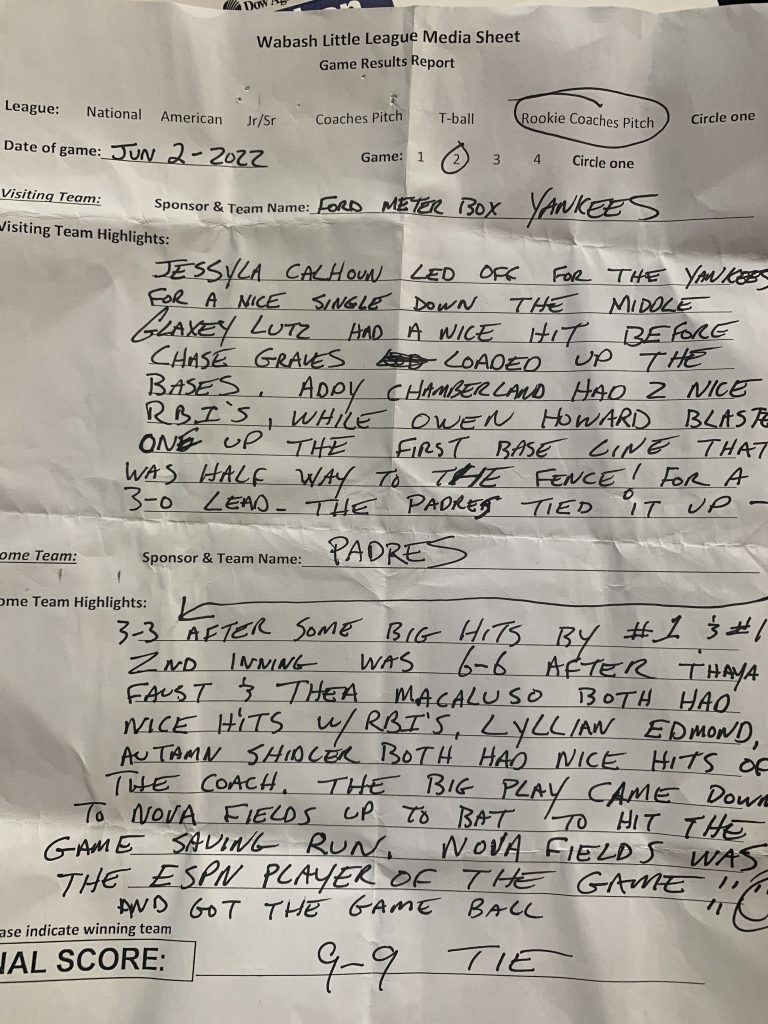 Dow Ag
Wabash Little League Media Sheet
Game Results Report
League: National American Jr/Sr Coaches Pitch T-ball Rookie Coaches Pitch Circle one
Date of game: JUN 2-2022 Game: 1 2 3 4 Circle one
Visiting Team: Sponsor & Team Name: FORD METER BOX YANKEES
Visiting Team Highlights:
JESSYLA CALHOUN LED OFF FOR THE YANKEES
FOR A NICE SINGLE DOWN THE MIDDLE
GLAXEY LUTZ HAD A NICE HIT BEFORE
CHASE GRAVES LOADED UP THE
BASES. ADDY CHAMBERLAND HAD 2 NICE
RBI'S, WHILE OWEN HOWARD BLASTE
ONE UP THE FIRST BASE LINE THAT
WAS HALF WAY TO THE FENCE! FOR A
3-0 LEAD- THE PADRES TIED IT UP -
ome Team: Sponsor & Team Name: PADRES
ome Team Highlights:
3-3 AFTER SOME BIG HITS BY #1 & #1
2ND INNING WAS 6-6 AFTER THAYA
FAUST & THEA MACALUSO BOTH HAD
NICE HITS W/RBI'S, LYLLIAN EDMOND,
AUTAMN SHIDLER BOTH HAD NICE HITS OF
THE COACH. THE BIG PLAY CAME DOWN
TO NOVA FIELDS UP TO BAT TO HIT THE
GAME SAVING RUN. NOVA FIELDS WAS
THE ESPN PLAYER OF THE GAME "
AND GOT THE GAME BALL "
ase indicate winning team
NAL SCORE: 9-9 TIE